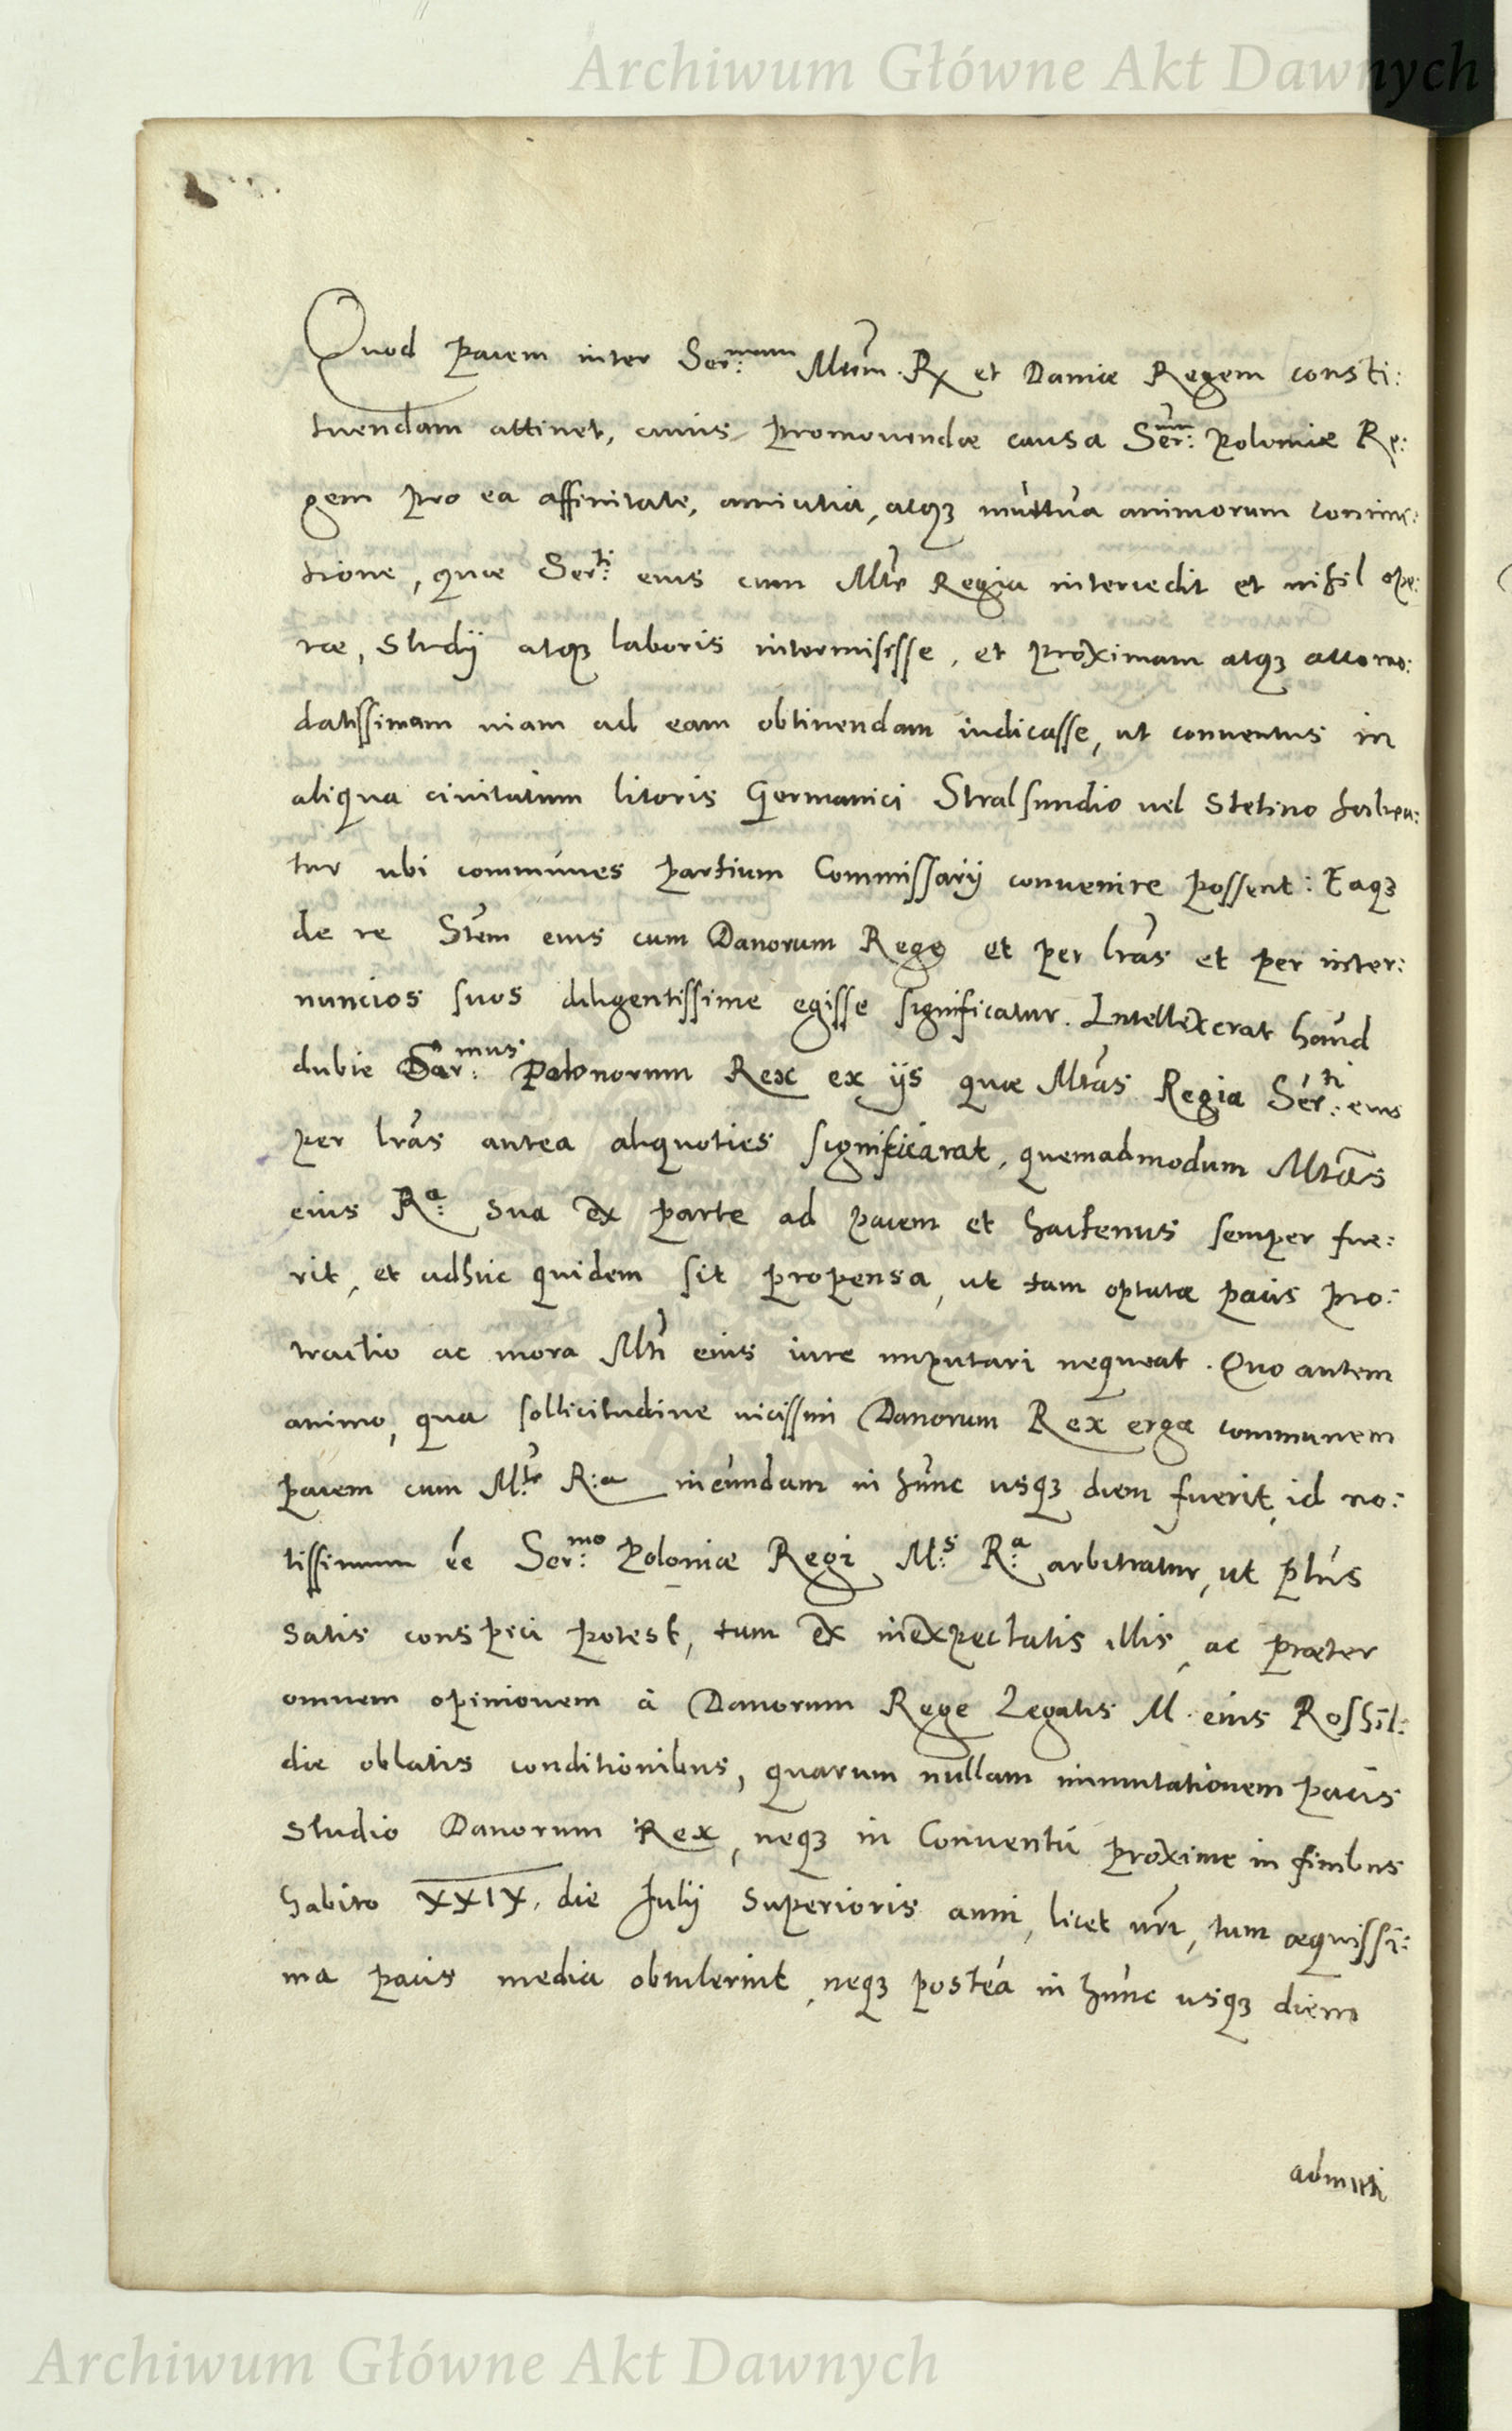 Archiwum Główne Akt Dawnych
Quod pacem inter Ser:mam Mtem. Rx et Daniæ Regem consti:
tuendam attinet, cuius promouendæ causa Ser:um Poloniæ Re:
gem pro ea affinitate, amicitia, atqȝ muttua animorum coniunc:
tione, quæ Ser:ti eius cum Mte Regia intercedit et nihil ope:
ræ, Studij atqȝ laboris intermisisse, et proximam atqȝ accomo:
datissimam uiam ad eam obtinendam iudicasse, ut conuentus in
aliqua ciuitatum litoris Germanici Stralsundio uel Stetino
tur ubi communes partium Commissarij convenire possent: Eaqȝ
de re Stem eius cum Danorum Rege et per lras et per inter:
nuncios suos diligentissime egisse significatur. Intellexerat haud
dubie Ser:mus Polonorum Rex ex ijs quæ Mtas Regia Ser:ti eius
per lras antea aliquoties significarat, quemadmodum Mtas
eius R:a sua ex parte ad pacem et hactenus semper fue:
rit, et adhuc quidem sit propensa, ut tam optatæ pacis pro:
tractio ac mora Mti eius iure imputari nequeat. Quo autem
animo, qua sollicitudine uicissim Danorum Rex erga communem
pacem cum M:te R:a ineundam in hunc usqȝ diem fuerit, id no:
tissimum ee Ser:mo Poloniæ Regi M:s R:a arbitratur, ut plus
satis conspici potest, tum ex inexpectatis illis, ac præter
omnem opinionem à Danorum Rege Legatis M. eius Roshil:
diæ oblatis conditionibus, quarum nullam immutationem pacis
studio Danorum Rex, neqȝ in Conuentu proxime in finibus
habito XXIX. die Julij superioris anni, licet nri, tum æquissi:
ma pacis media obtulerint, neqȝ postea in hunc usqȝ diem
admitti
Archiwum Główne Akt Dawnych